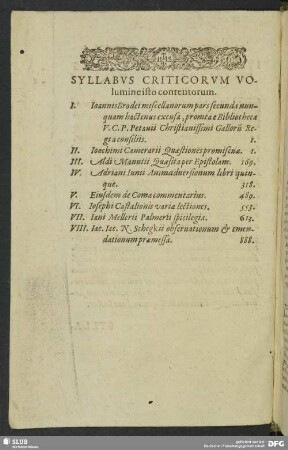 SYLLABVS CRITICORVM VO-
lumine isto contentorum.
I. Ioannis Brodei miscellanorum pars secunda nun-
quam hactenus excusa, promta e Bibliotheca
V. C. P. Petauii Christianissimi Gallorũ Re-
gis a consiliis. 1.
II. Ioachimi Camerarii Quæstiones promiscuæ. 1.
III. Aldi Manutii Quæsita per Epistolam. 169.
IV. Adriani Iunii Animaduersionum libri quin-
que. 318.
V. Eiusdem de Coma commentarius. 480.
VI. Iosephi Castalionis varia lectiones. 553.
VII. Iani Mellerii Palmerii spicilegia. 613.
VIII. Iac. Iac. N. Schegkii observationum & emen-
dationum præmessa. 888.
SLUB
DFG